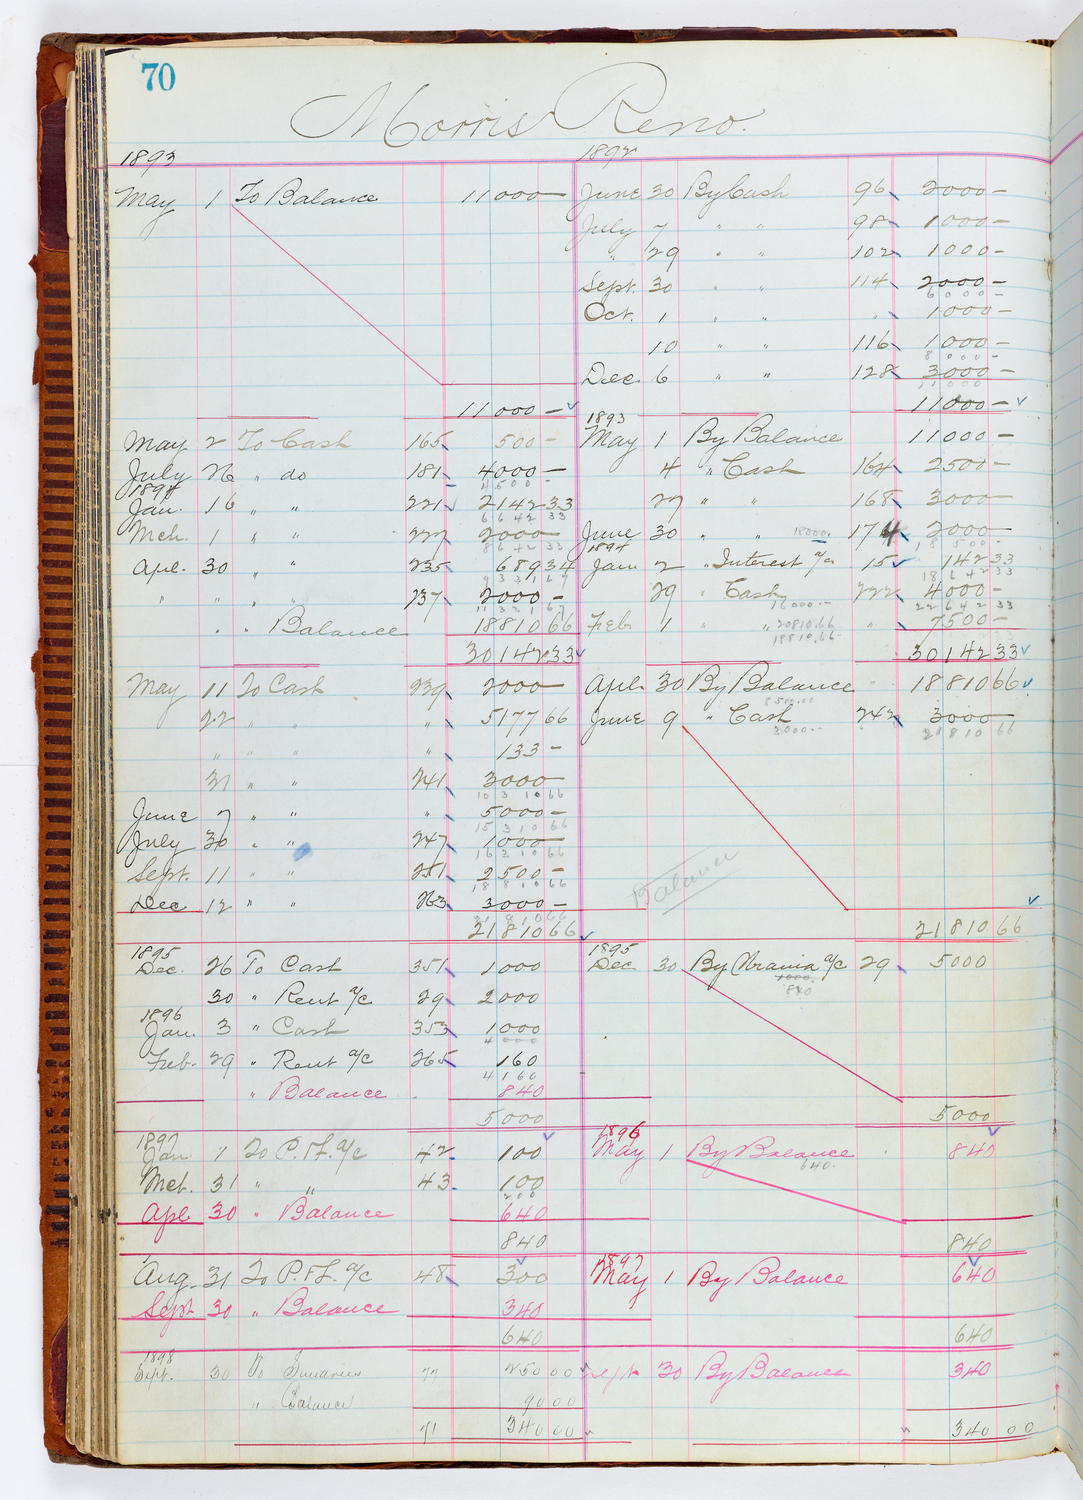 70
Morris Reno.
1893
May 1 To Balance 11000 —
11000 —
May 2 To Cash 165 500 —
July 26 " do 181 4000 —
4500 —
1894
Jan. 16 " " 221 2142 33
6642 33
Mch. 1 " " 227 2000 —
8642 33
Apl. 30 " " 235 689 34
9331 67
" " " " 237 2000 —
11331 67
" " Balance 18810 66
30142 33
May 11 To Cash 239 2000 —
22 " " " 5177 66
" " " " 133 —
31 " " 241 3000 —
10310 66
June 7 " " " 5000 —
15310 66
July 30 " " 247 1000 —
16310 66
Sept. 11 " " 251 2500 —
18810 66
Dec 12 " " 263 3000 —
21810 66
21810 66
1895
Dec. 26 To Cash 351 1000
30 " Rent a/c 29 2000
1896
Jan. 3 " Cash 353 1000
4000
Feb. 29 " Rent a/c 265 160
4160
" Balance 840
5000
1897
Jan 1 To P. & L. a/c 42 100
Mch. 31 " " 43 100
200
Apl 30 " Balance 640
840
Aug. 31 To P. & L. a/c 48 300
Sept 30 " Balance 340
640
1898
Sept. 30 To Sundries 77 250 00
" Balance 90 00
71 340 00
1892
June 30 By Cash 96 2000 —
July 7 " " 98 1000 —
" 29 " " 102 1000 —
Sept. 30 " " 114 2000 —
6000 —
Oct. 1 " " " 1000 —
10 " " 116 1000 —
8000 —
Dec. 6 " " 128 3000 —
11000
11000 —
1893
May 1 By Balance 11000 —
4 " Cash 164 2500 —
27 " " 168 3000 —
June 30 " " 18000. 174 2000 —
18500 —
1894
Jan 2 " Interest a/c 15 142 33
18642 33
29 " Cash 222 4000 —
16000.— 22642 33
Feb. 1 " " 20810.66 " 7500 —
18810.66
30142 33
Apl. 30 By Balance 18810 66
8500.00
June 9 " Cash 242 3000
3000.— 21810 66
Balance
21810 66
1895
Dec 30 By Urania a/c 29 5000
1000.
840
5000
1896
May 1 By Balance 840
640.
840
1897
May 1 By Balance 640
640
Sept 30 By Balance 340
340 00